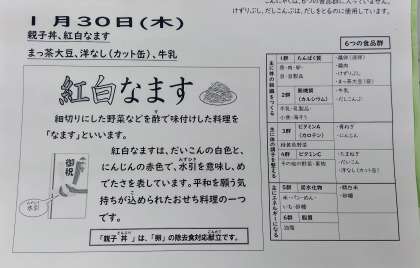 けずりぶし、だしこんぶは、だしをとるのに使用しています。
1月30日(木)
親子丼、紅白なます
まっ茶大豆、洋なし(カット缶)、牛乳
紅白なます
細切りにした野菜などを酢で味付けした料理を
「なます」といいます。
紅白なますは、だいこんの白色と、
にんじんの赤色で、水引を意味し、め
でたさを表しています。平和を願う気
持ちが込められたおせち料理の一つ
です。
御祝
水引
「親子丼」は、「卵」の除去食対応献立です。
6つの食品群
主に体の組織をつくる
1群 たんぱく質
魚・肉・卵・
豆・豆製品
・鶏卵(液卵)
・鶏肉
・けずりぶし
・まっ茶大豆(袋)
2群 無機質
(カルシウム)
牛乳・乳製品・
小魚・海そう
・牛乳
・だしこんぶ
主に体の調子を整える
3群 ビタミンA
(カロテン)
緑黄色野菜
・青ねぎ
・にんじん
4群 ビタミンC
その他の野菜・果物
・たまねぎ
・だいこん
・洋なし(カット缶)
主にエネルギーになる
5群 炭水化物
米・パン・めん・
いも・砂糖
・精白米
・砂糖
6群 脂質
油脂